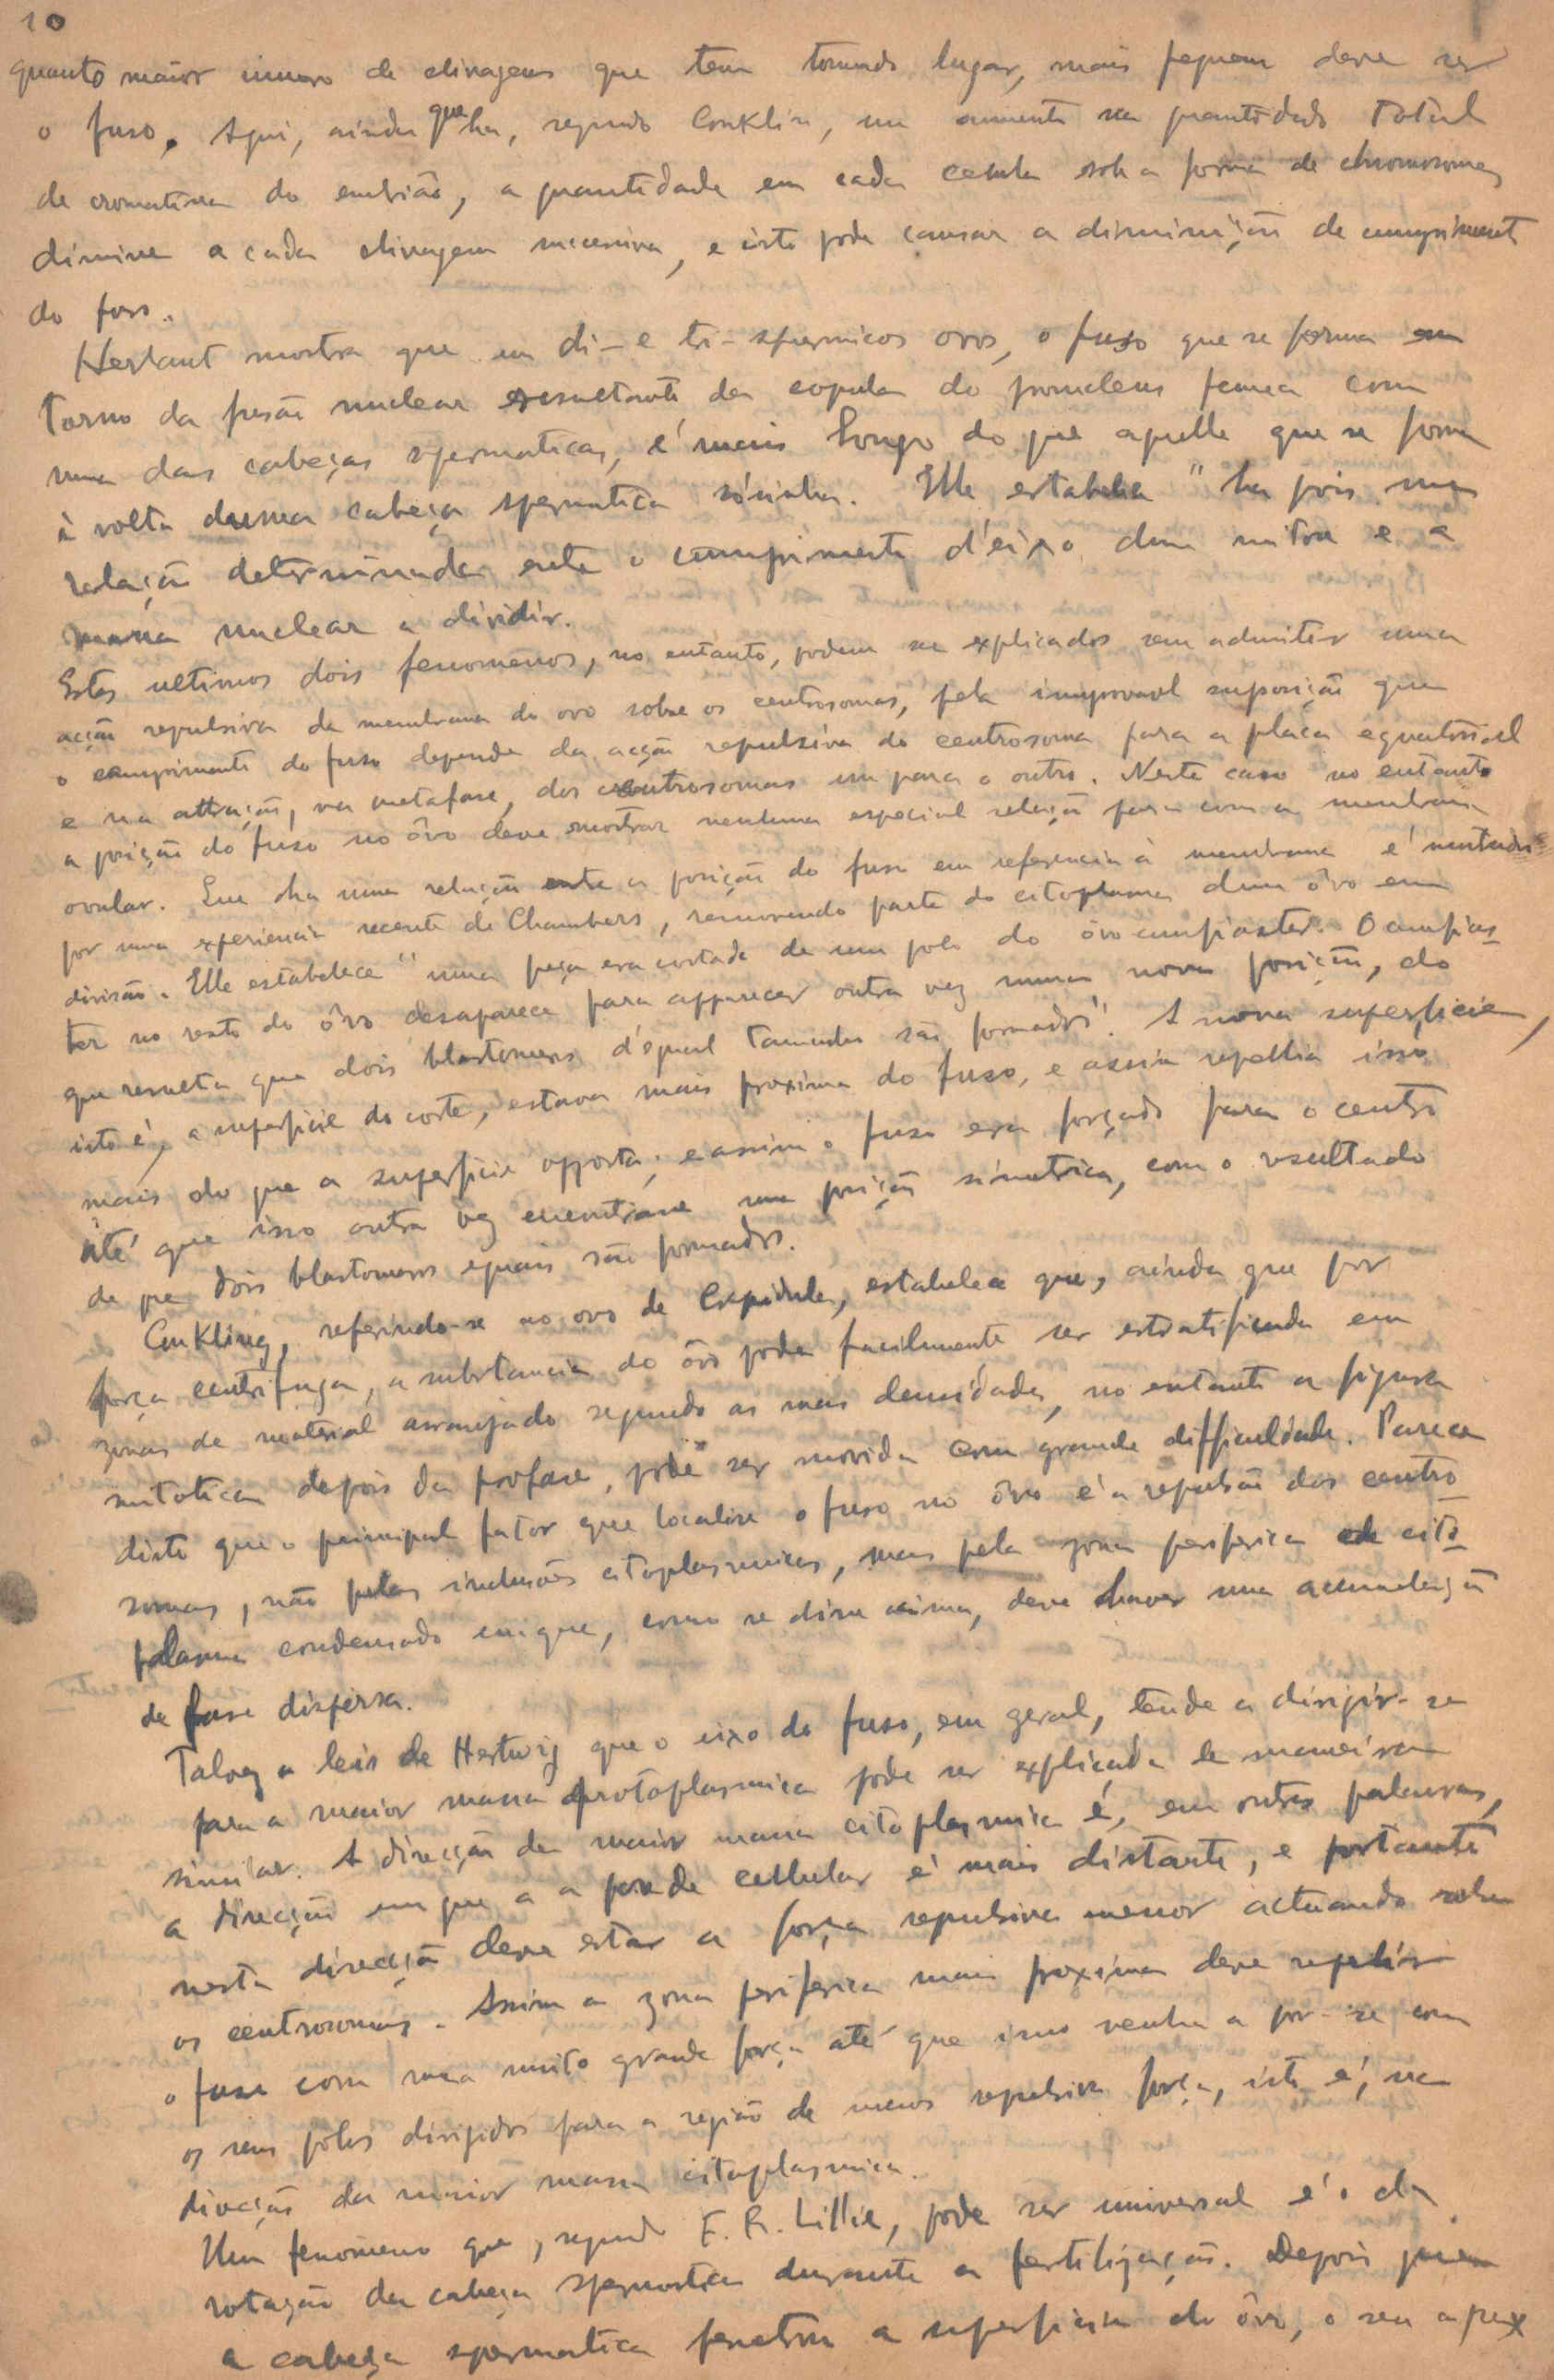 10
quanto maior numero de clivagens que tem tomado lugar, mais pequeno deve ser
o fuso. Aqui, ainda que ha, segundo Conklin, um aumento na quantidade total
de cromatina do embrião, a quantidade em cada celula sob a forma de chromosomes
diminue a cada clivagem sucessiva, e isto pode causar a diminuição de cumprimento
do fuso.
Herlant mostra que em di- e tri-spermicos ovos, o fuso que se forma em
torno da fusão nuclear resultante da copula do pronucleus femea com
uma das cabeças spermaticas, é mais longo do que aquelle que se forma
à volta duma cabeça spermatica sósinha. Elle estabelece "ha pois uma
relação determinada entre o cumprimento d'eixo dum mitose e a
massa nuclear a dividir.
Estes ultimos dois fenomenos, no entanto, podem ser explicados sem admitir uma
acção repulsiva da membrana do ovo sobre os centrosomas, pela improvavel suposição que
o cumprimento do fuso depende da acção repulsiva do centrosoma para a placa equatorial
e na attração, na metafase, dos centrosomas um para o outro. Neste caso no entanto
a posição do fuso no ôvo deve mostrar nenhuma especial relação para com a membrana
ovular. Que ha uma relação entre a posição do fuso em referencia à membrana é mostrado
por uma experiencia recente de Chambers, removendo parte do citoplasma dum ôvo em
divisão. Elle estabelece "uma peça era cortada de um polo do ôvo amfiaster. O amfias-
ter no resto do ôvo desaparece para apparecer outra vez numa nova posição, do
que resulta que dois blastomeros d'egual tamanho são formados". A nova superficie,
isto é, a superficie do corte, estava mais proxima do fuso, e assim repellia isso
mais do que a superficie opposta, e assim o fuso era forçado para o centro
até que isso outra vez encontrasse uma posição simetrica, com o resultado
de que dois blastomeros eguais são formados.
Conkling, referindo-se ao ovo de Crepidula, estabelece que, ainda que por
força centrifuga, a substancia do ôvo pode facilmente ser estratificada em
zonas de material arranjado segundo as suas densidades, no entanto a figura
mitotica depois da profase, pode ser movida com grande difficuldade. Parece
disto que o principal fator que localisa o fuso no ôvo é a repulsão dos centro-
somas, não pelas inclusões citoplasmicas, mas pela zona periferica de cito-
plasma condensado em que, como se disse acima, deve haver uma acumulação
de fase dispersa.
Talvez a leis de Hertwig que o eixo do fuso, em geral, tende a dirigir-se
para a maior massa protoplasmica pode ser explicada de maneira
similar. A direcção da maior massa citoplasmica é, em outras palavras,
a direcção em que a a parede cellular é mais distante, e portanto
nesta direcção deve estar a força repulsiva menor actuando sobre
os centrosomas. Assim a zona periferica mais proxima deve repelir
o fuso com uma muito grande força até que isso venha a por-se com
os seus polos dirigidos para a região de menos repulsiva força, isto é, na
direcção da maior massa citoplasmica.
Um fenomeno que, segundo F. R. Lillie, pode ser universal é o da
rotação da cabeça spermatica durante a fertilização. Depois que
a cabeça spermatica penetra a superficie do ôvo, o seu apex